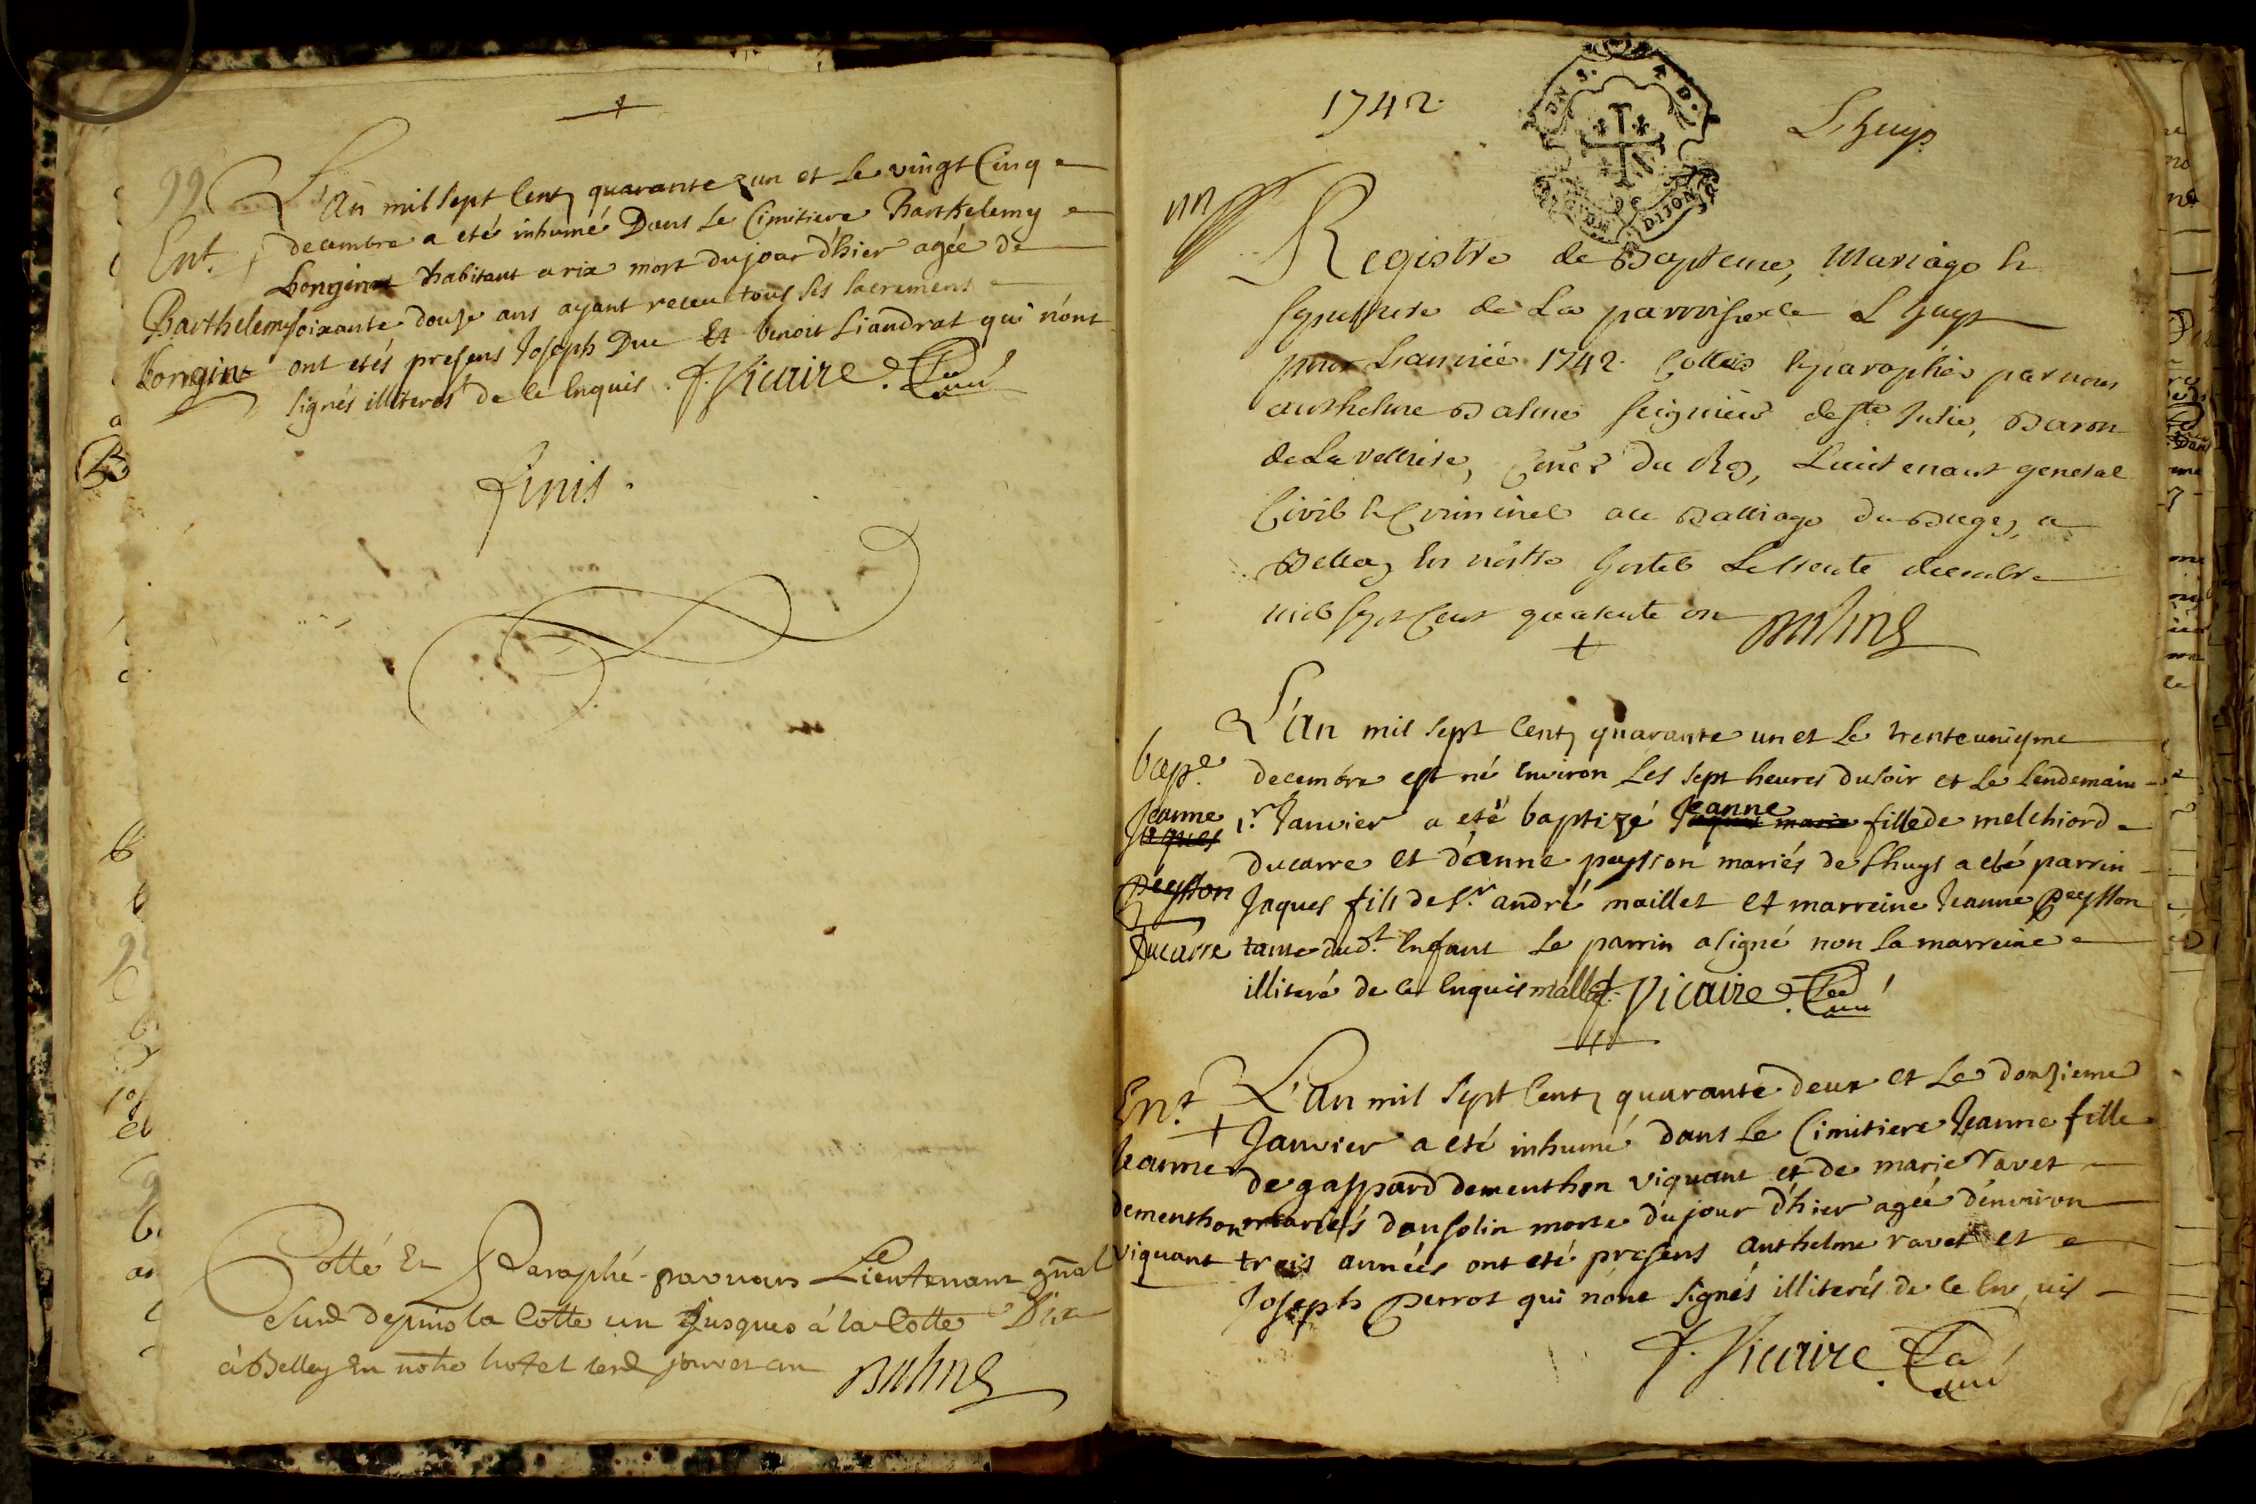 99
Ent.
Barthelemy
Longin
L'an mil sept Cent quarante un et le vingt Cinq
decembre a eté inhumé Dans le Cimitiere Barthelemy
Longin habitant a rix mort dujour d'hier agée de
soixante douze ans ayant receu tous ses sacrements
ont etés presens Joseph Duc Et benoit Liandrat qui n'ont
signés illiterés de ce enquis. f. Vicaire. Curé
finis.
Cotté Et Paraphé par nous Lieutenant gnal
Susd depuis la Cotte un Jusques à la Cotte Dix
à Belley En notre hotel lesd jour et an Balme
1742.
Lhuys
un
Registre de Bapteme, Mariage &
sepulture de La parroisse de Lhuys
pour L'année 1742. Cottée & paraphée par nous
anthelme Balme seigneur de ste Julie, Baron
de La Velliere, Coner Du Roy, Lieutenant general
Civil & Criminel au Balliage du Bugey, a
Belley En nostre hostel Le trente decembre
mil sept Cent quarante un Balme
bape.
Jeanne
Jaques
Peysson
Ducarre
L'an mil sept Cent quarante un et le trente unieme
decembre est né Environ les sept heures dusoir et le lendemain
1.r Janvier a eté baptizé Jeanne fille de melchiord
ducarre et d'anne peysson mariés de Lhuys a eté parrin
Jaques fils de s.r andré maillet et marreine Jeanne Peysson
tante dud.t Enfant le parrin a signé non la marreine
illiteré de ce enquis mallet f. Vicaire. Curé
Ent.
Jeanne
dementhon
viquant
L'an mil sept Cent quarante deux et le douzieme
Janvier a eté inhumé dans le Cimitiere Jeanne fille
de gaspard dementhon viquant et de marie ravet
mariés dansolin morte du jour d'hier agée d'environ
trois années ont eté presens anthelme ravet et
Joseph Perrot qui n'ont signés illiterés de ce enquis
f. Vicaire. Curé